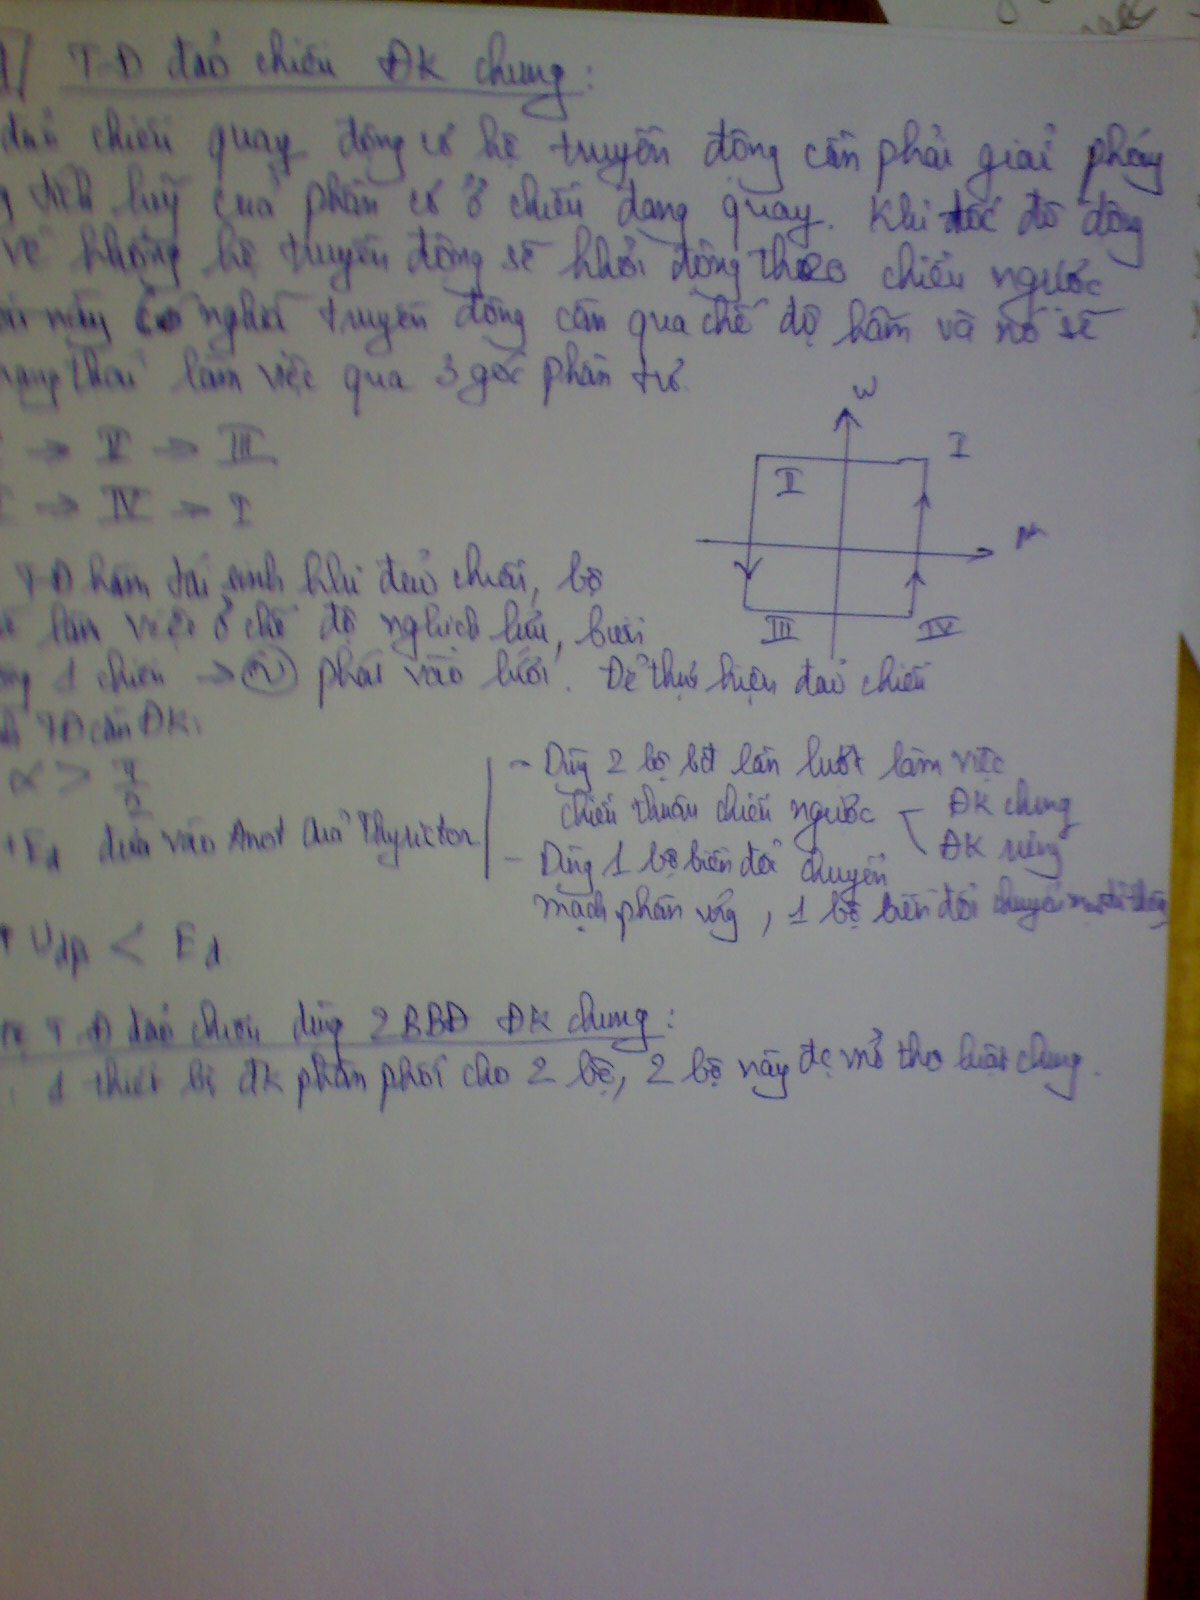 T-Đ đảo chiều ĐK chung:
đảo chiều quay động cơ hệ truyền động cần phải giải phóng
tích luỹ của phần cơ ở chiều đang quay. Khi tốc độ động
về không hệ truyền động sẽ khởi động theo chiều ngược
này có nghĩa truyền động cần qua chế độ hãm và nó sẽ
làm việc qua 3 góc phần tư.
→ II → III
→ IV → I
ω
I
II
M
III
IV
T-Đ hãm tái sinh khi đảo chiều, bộ
làm việc ở chế độ nghịch lưu, biến
1 chiều → ~ phát vào lưới. Để thực hiện đảo chiều
TĐ cần ĐK:
α > π/2
+ Ed đưa vào Anot của Thyristor
+ Udβ < Ed
- Dùng 2 bộ bđ lần lượt làm việc
chiều thuận chiều ngược
ĐK chung
ĐK riêng
- Dùng 1 bộ biến đổi chuyển
mạch phần ứng, 1 bộ biến đổi chuyển
T-Đ đảo chiều dùng 2 BBĐ ĐK chung:
1 thiết bị đk phân phối cho 2 bộ, 2 bộ này đc mở theo luật chung.